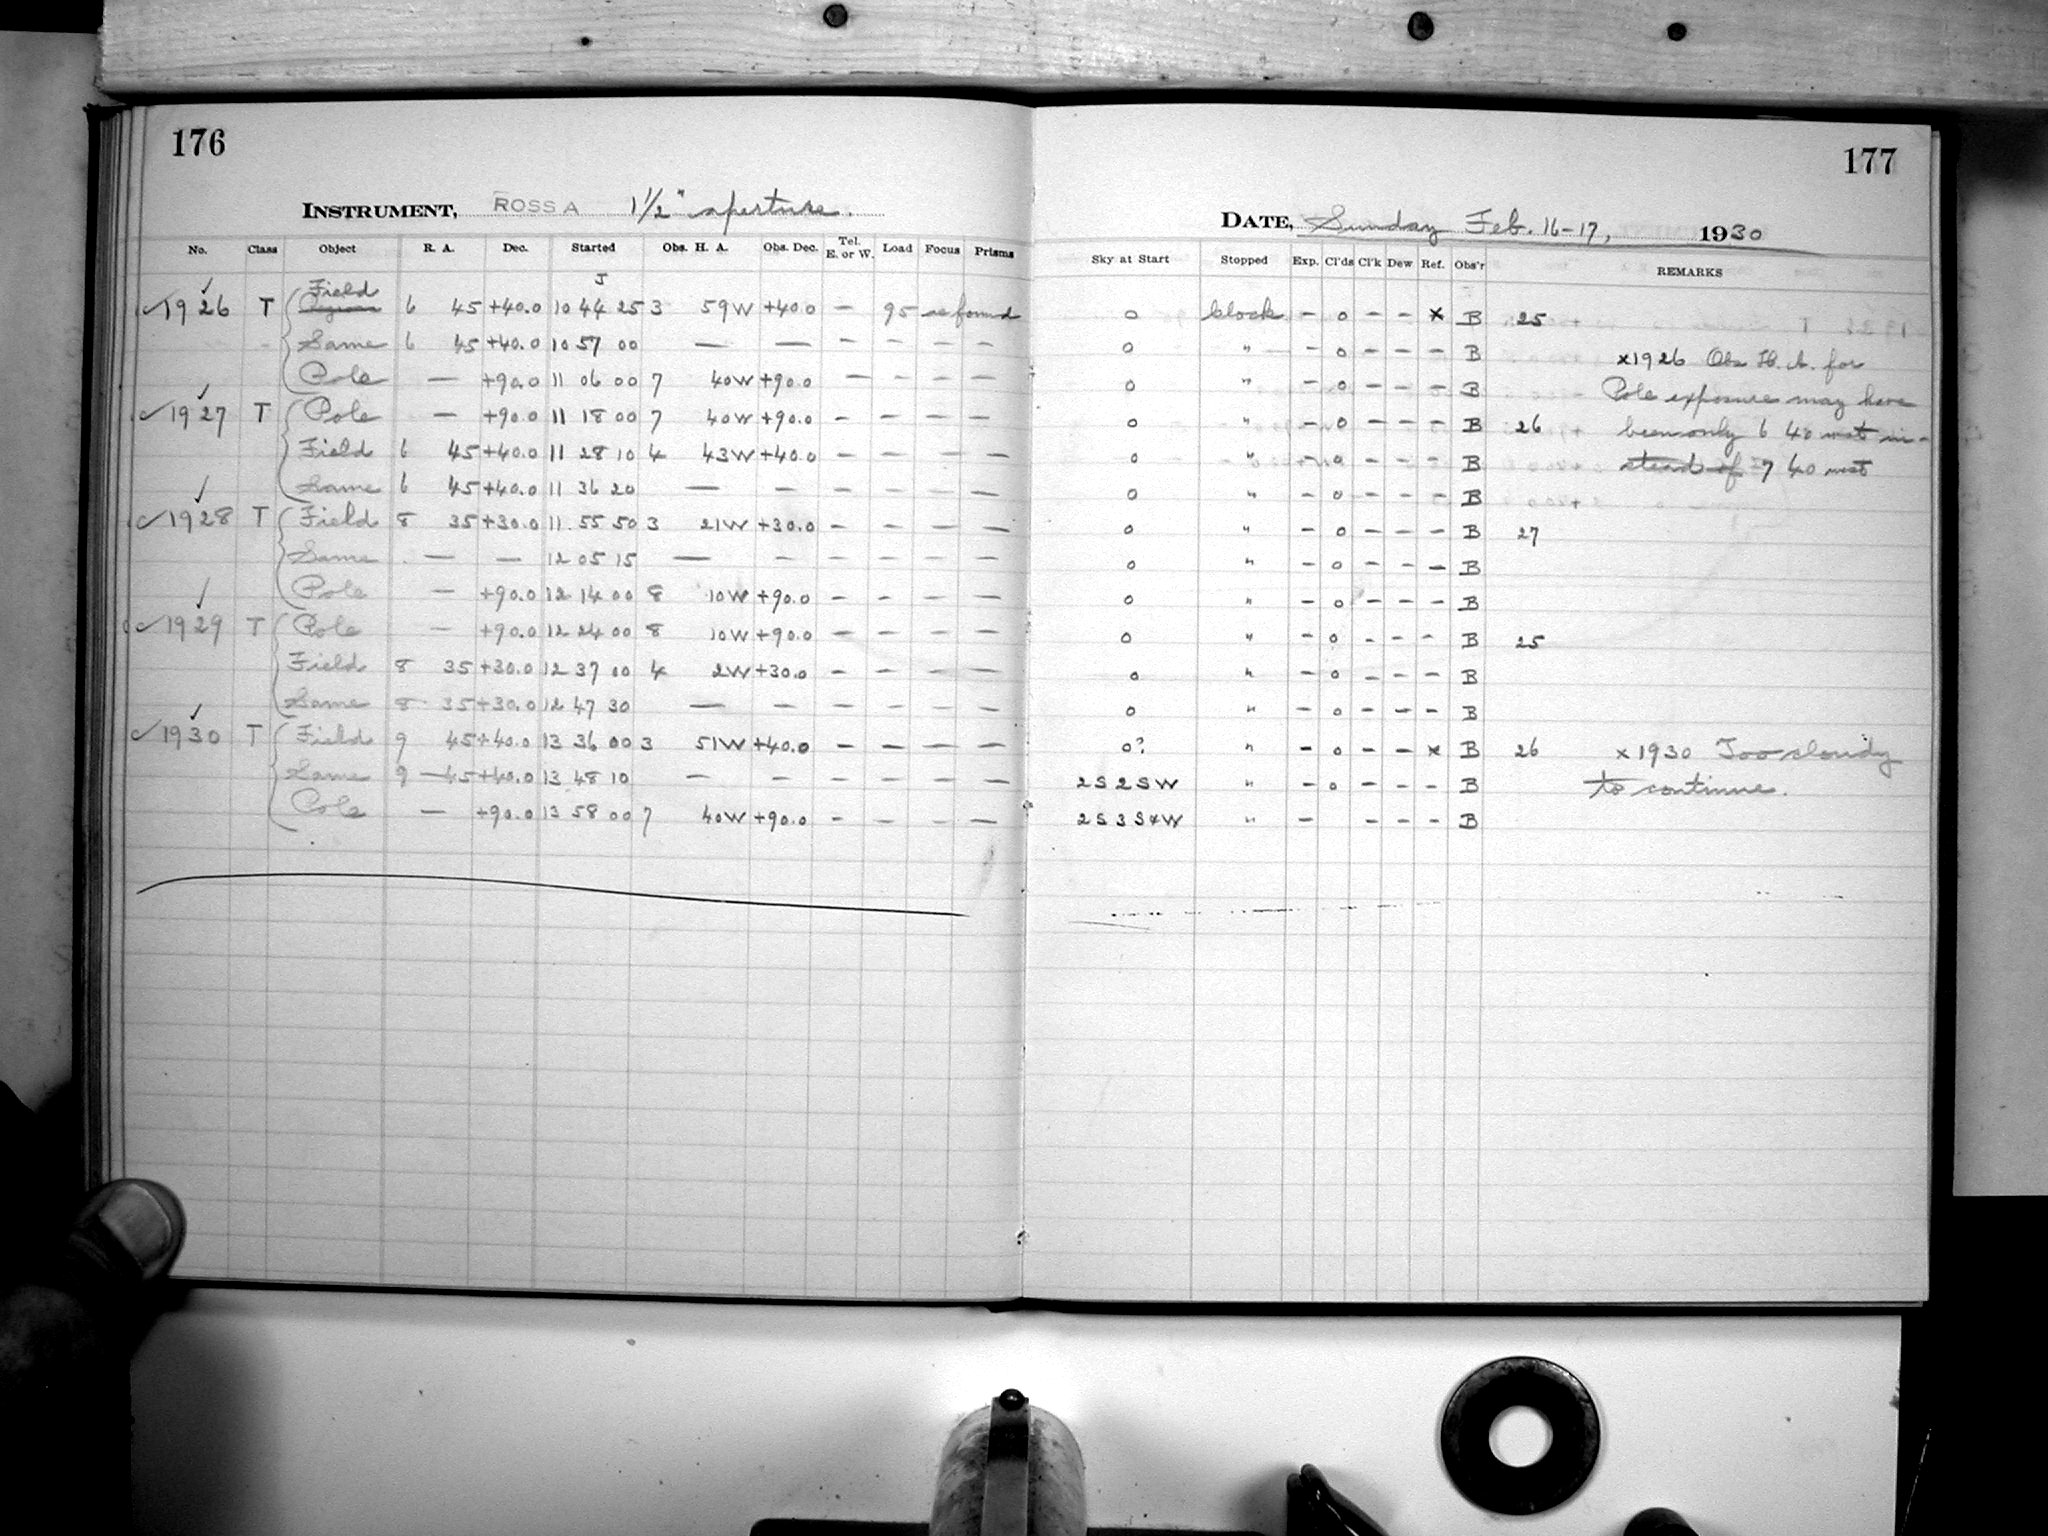 176
INSTRUMENT, ROSS A 1½" aperture.
No. Class Object R. A. Dec. Started Obs. H. A. Obs. Dec. Tel. E. or W. Load Focus Prisms
J
Field
1926 T 6 45 +40.0 10 44 25 3 59W +40.0 — 95 as found
Same 6 45 +40.0 10 57 00 — — — — — —
Pole — +90.0 11 06 00 7 40W +90.0 — — — —
1927 T Pole — +90.0 11 18 00 7 40W +90.0 — — — —
Field 6 45 +40.0 11 28 10 4 43W +40.0 — — — —
Same 6 45 +40.0 11 36 20 — — — — — —
1928 T Field 8 35 +30.0 11 55 50 3 21W +30.0 — — — —
Same — — 12 05 15 — — — — — —
Pole — +90.0 12 14 00 8 10W +90.0 — — — —
1929 T Pole — +90.0 12 24 00 8 10W +90.0 — — — —
Field 8 35 +30.0 12 37 00 4 2W +30.0 — — — —
Same 8 35 +30.0 12 47 30 — — — — — —
1930 T Field 9 45 +40.0 13 36 00 3 51W +40.0 — — — —
Same 9 — 45 +40.0 13 48 10 — — — — — —
Pole — +90.0 13 58 00 7 40W +90.0 — — — —
177
DATE, Sunday Feb. 16-17, 1930
Sky at Start Stopped Exp. Cl'ds Cl'k Dew Ref. Obs'r REMARKS
0 clock — 0 — — x B 25
0 " — 0 — — — B x1926 Obs H. A. for
0 " — 0 — — — B Pole exposure may have
0 " — 0 — — — B 26 been only 6 40 west in-
0 " — 0 — — — B stead of 7 40 west
0 " — 0 — — — B
0 " — 0 — — — B 27
0 " — 0 — — — B
0 " — 0 — — — B
0 " — 0 — — — B 25
0 " — 0 — — — B
0 " — 0 — — — B
0? " — 0 — — x B 26 x 1930 Too cloudy
2S 2SW " — 0 — — — B to continue.
2S 3S+W " — — — — B